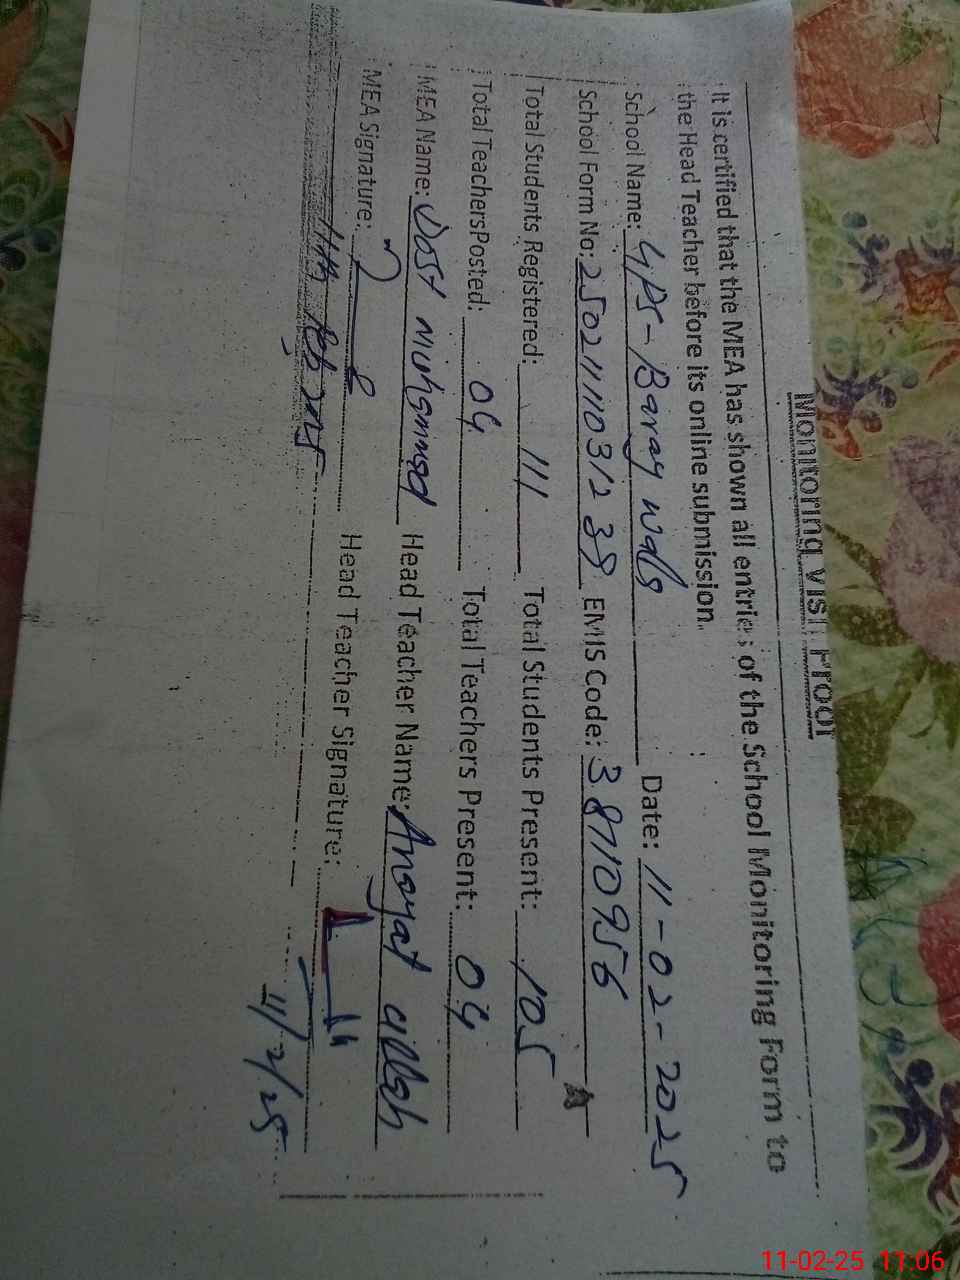 Monitoring Visit Proof
It is certified that the MEA has shown all entries of the School Monitoring Form to
the Head Teacher before its online submission.
School Name: GPS-Baray wala Date: 11-02-2025
School Form No: 250211110312 38 EMIS Code: 38710956
Total Students Registered: 111 Total Students Present: 105
Total TeachersPosted: 04 Total Teachers Present: 04
MEA Name: Dost Muhammad Head Teacher Name: Anayat ullah
MEA Signature: Head Teacher Signature:
11th Feb 2025 11/2/25
11-02-25 11:06